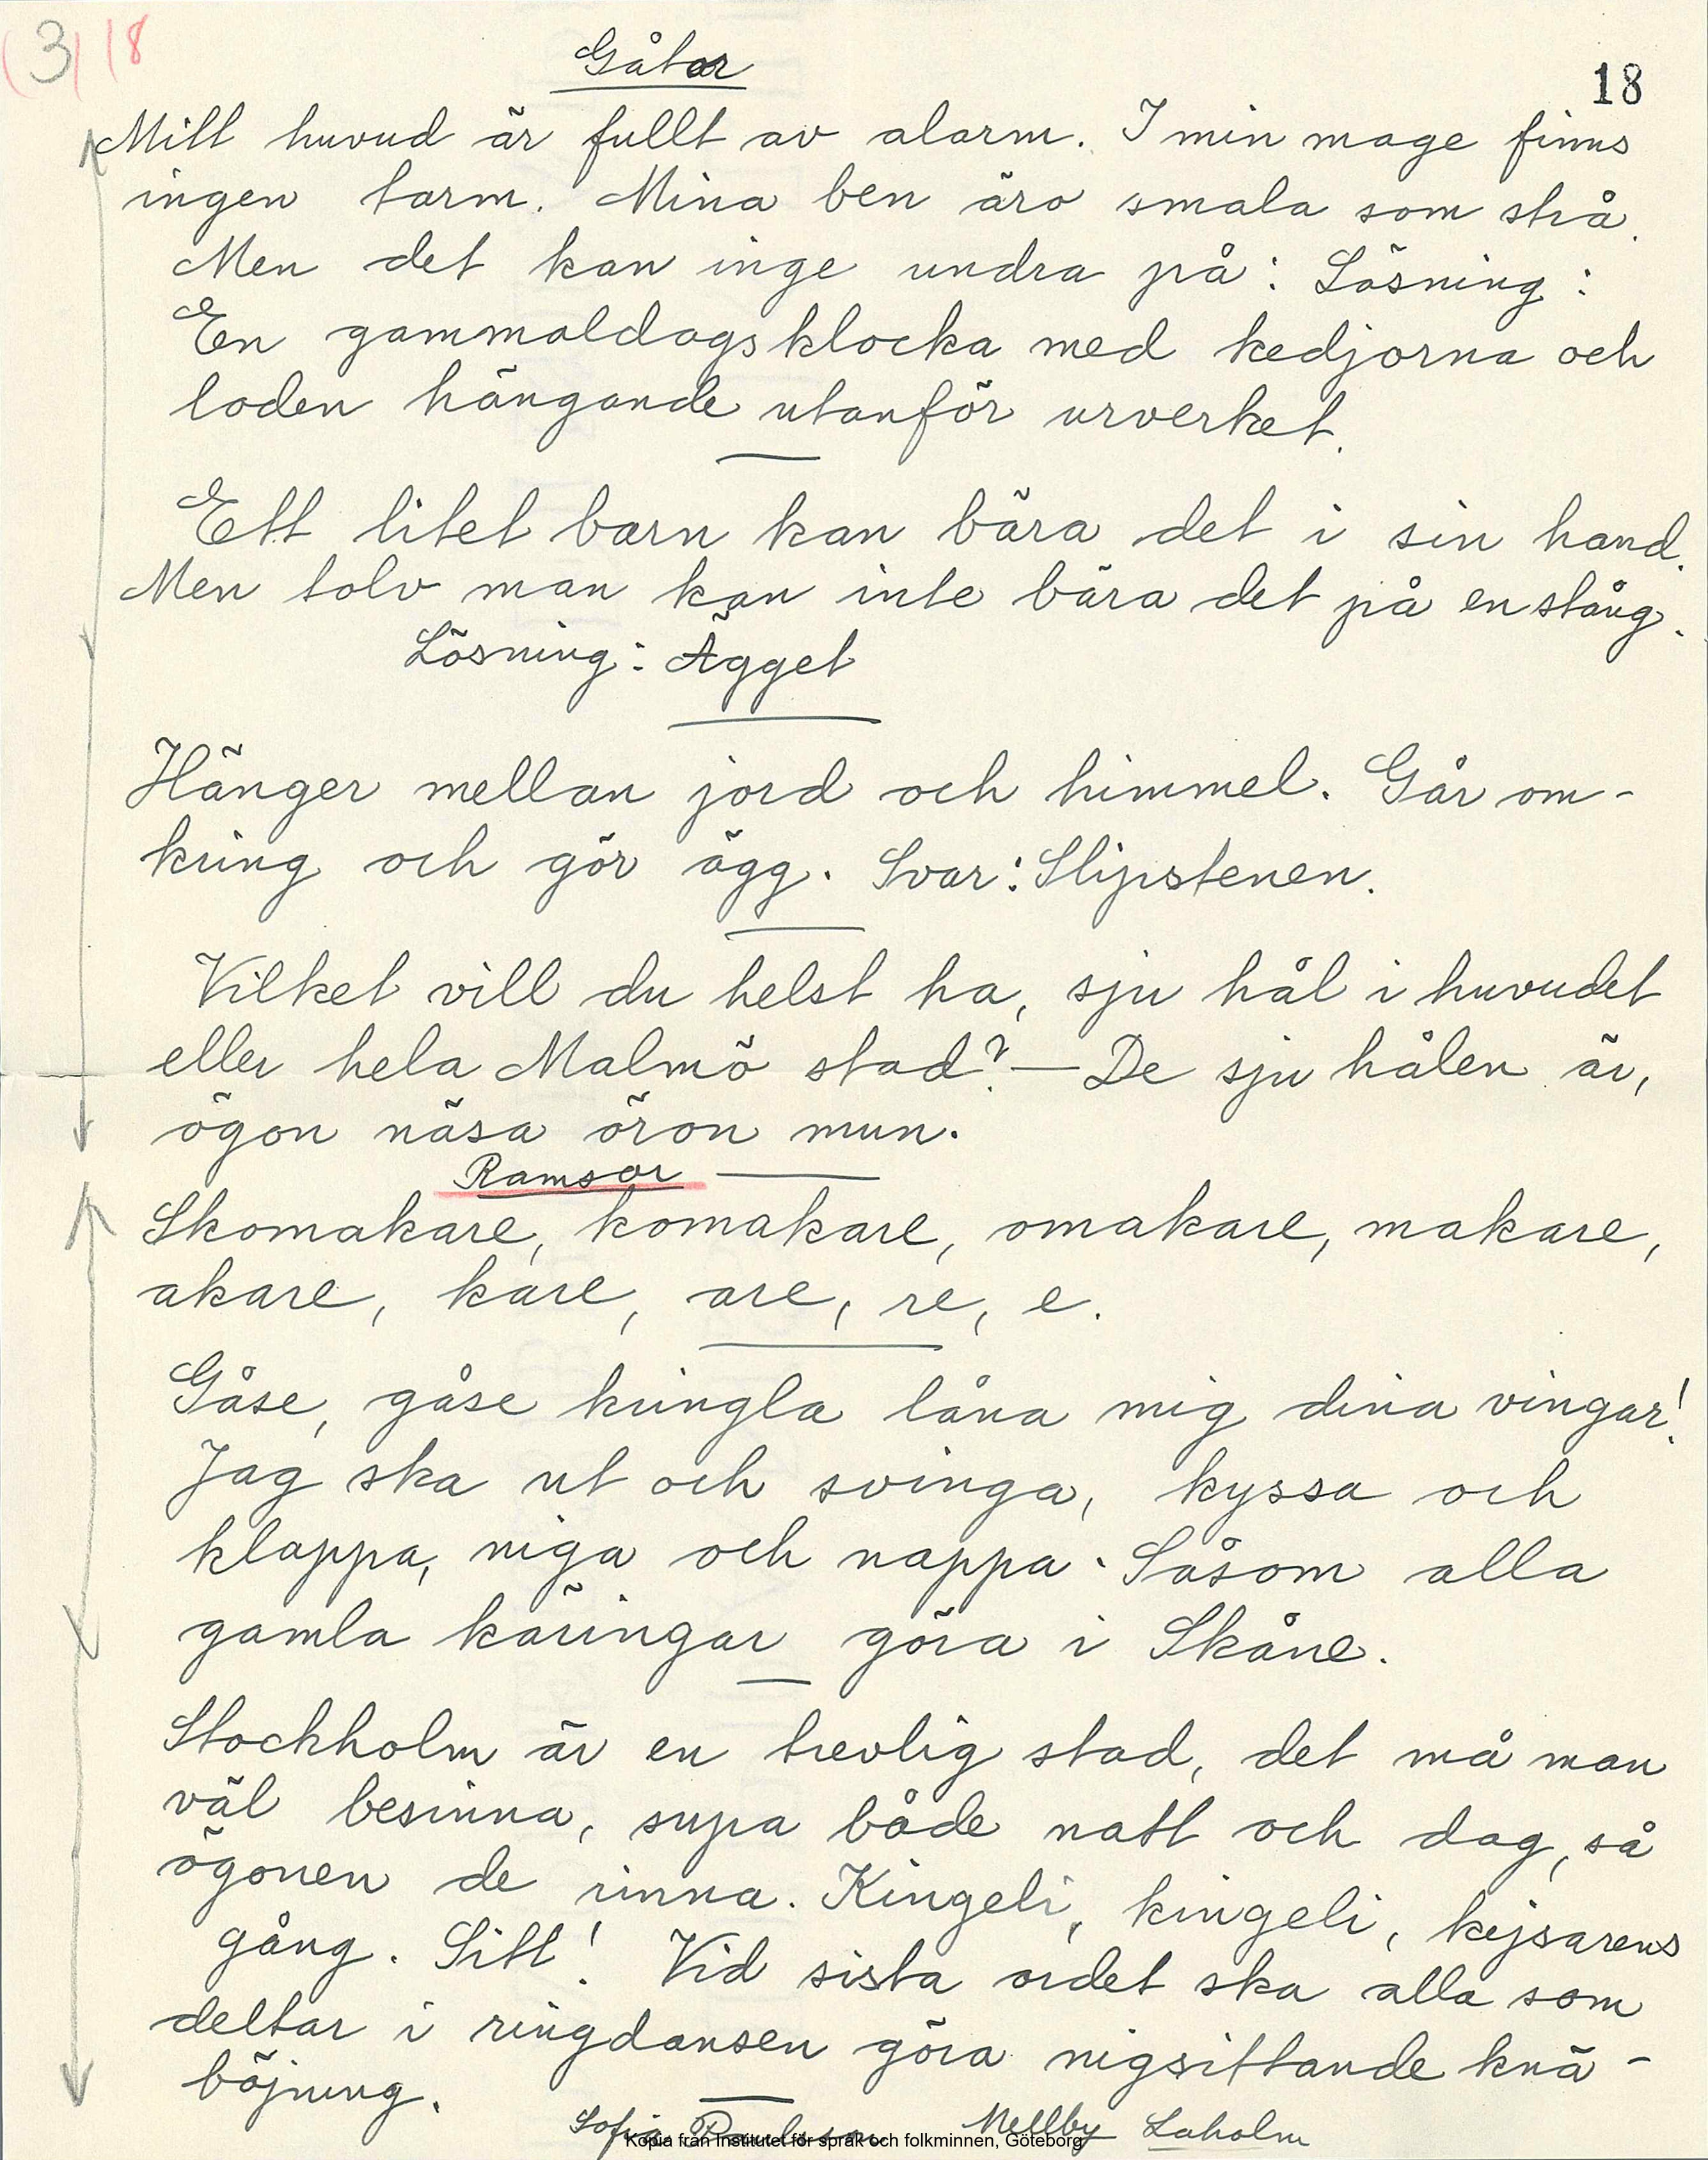 (3) 18
Gåtor
18
Mitt huvud är fullt av alarm. I min mage finns
ingen tarm. Mina ben äro smala som strå.
Men det kan inge undra på: Lösning:
En gammaldags klocka med kedjorna och
loden hängande utanför urverket.
Ett litet barn kan bära det i sin hand.
Men tolv man kan inte bära det på en stång.
Lösning: Ägget
Hänger mellan jord och himmel. Går om-
kring och gör ägg. Svar: Slipstenen.
Vilket vill du helst ha, sju hål i huvudet
eller hela Malmö stad? — De sju hålen är,
ögon näsa öron mun.
Ramsor
Skomakare, komakare, omakare, makare,
akare, kare, are, re, e.
Gåse, gåse kringla låna mig dina vingar!
Jag ska ut och svinga, kyssa och
klappa, niga och nappa. Såsom alla
gamla käringar göra i Skåne.
Stockholm är en trevlig stad, det må man
väl besinna, supa både natt och dag, så
ögonen de rinna. Kingeli, kingeli, kejsarens
gång. Sitt! Vid sista ordet ska alla som
deltar i ringdansen göra nigsittande knä-
böjning.
Sofia Mellby Laholm
Kopia från Institutet för språk och folkminnen, Göteborg